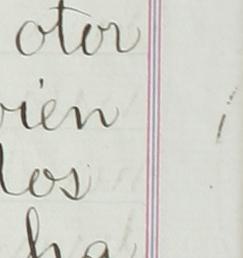 otor
rien
los
ha